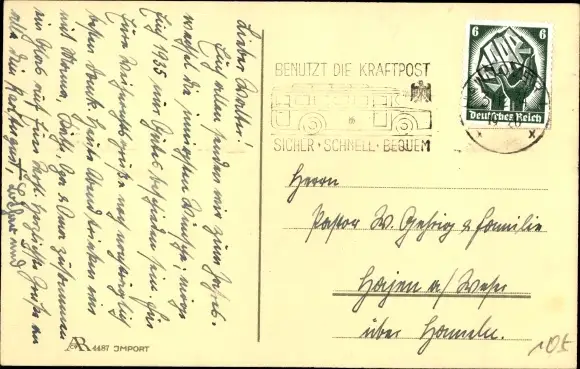 Lieber Walter!
Euch allen senden wir zum Jahres-
wechsel die innigsten Wünsche, möge
Euch 1935 nur Gutes beschieden sein. Für
Eure Weihnachtsgrüße noch nachträglich
besten Dank. Heute Abend trinken wir
mit Mama,
ein Glas auf Euer Wohl. Herzlichste Grüße an
alle
BENUTZT DIE KRAFTPOST
SICHER · SCHNELL · BEQUEM
6 6
Deutsches Reich
Herrn
Pastor W. Gehrig & Familie
Hajen a/Weser
über Hameln.
105
4487 IMPORT